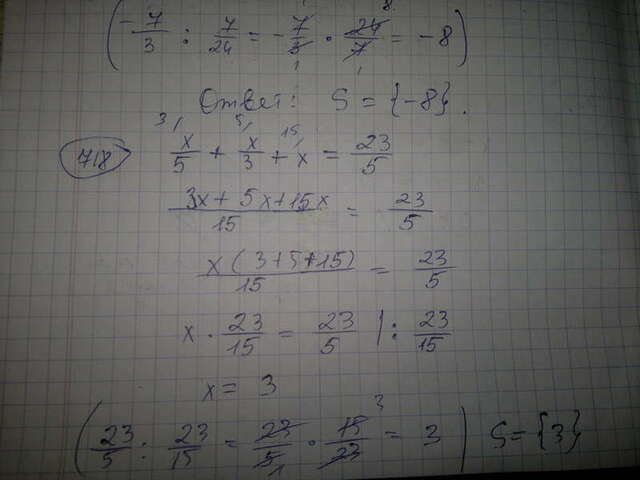 (-7/3 : 7/24 = -7/3 · 24/7 = -8)
Ответ: S = {-8}.
718 x/5 + x/3 + x = 23/5
3x + 5x + 15x / 15 = 23/5
x(3+5+15) / 15 = 23/5
x · 23/15 = 23/5 | : 23/15
x = 3
(23/5 : 23/15 = 23/5 · 15/23 = 3) S = {3}